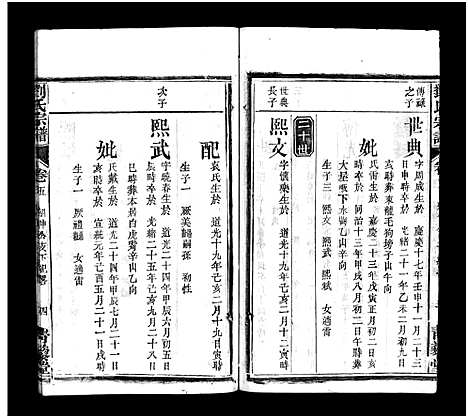 傳祿
之子
世典
字周成生於 嘉慶十七年壬申十一月
日申時卒於 光緒二十一年乙未二月初九日
時葬東龍毛狗塝子山午向
妣
雷氏生於 嘉慶二十三年戊寅正月初八日寅
時卒於 同治十三年甲戌八月初二日午時葬
大屋墈下水溝背乙山辛向
生子三 熙文 熙武 熙斌 女適雷
二十世
世典
長子
熙文
字懷榮生於 道光十九年己亥二月十二寅時
配
袁氏生於 道光十九年己亥二月十九日寅時
生子一 厥美繼嗣孫 初性
次子
熙武
字乾春生於 道光二十四年甲辰六月初五日
巳時卒於 光緒二十五年己亥二月二十八日
時葬本屋居白虎嘴辛山乙向
妣
氏生於 道光二十四年甲辰七月二十一日
亥時卒於 宣統元年己酉五月二十一日
生子一 厥禮繼 女適雷
劉氏宗譜
卷五
四
青藜堂